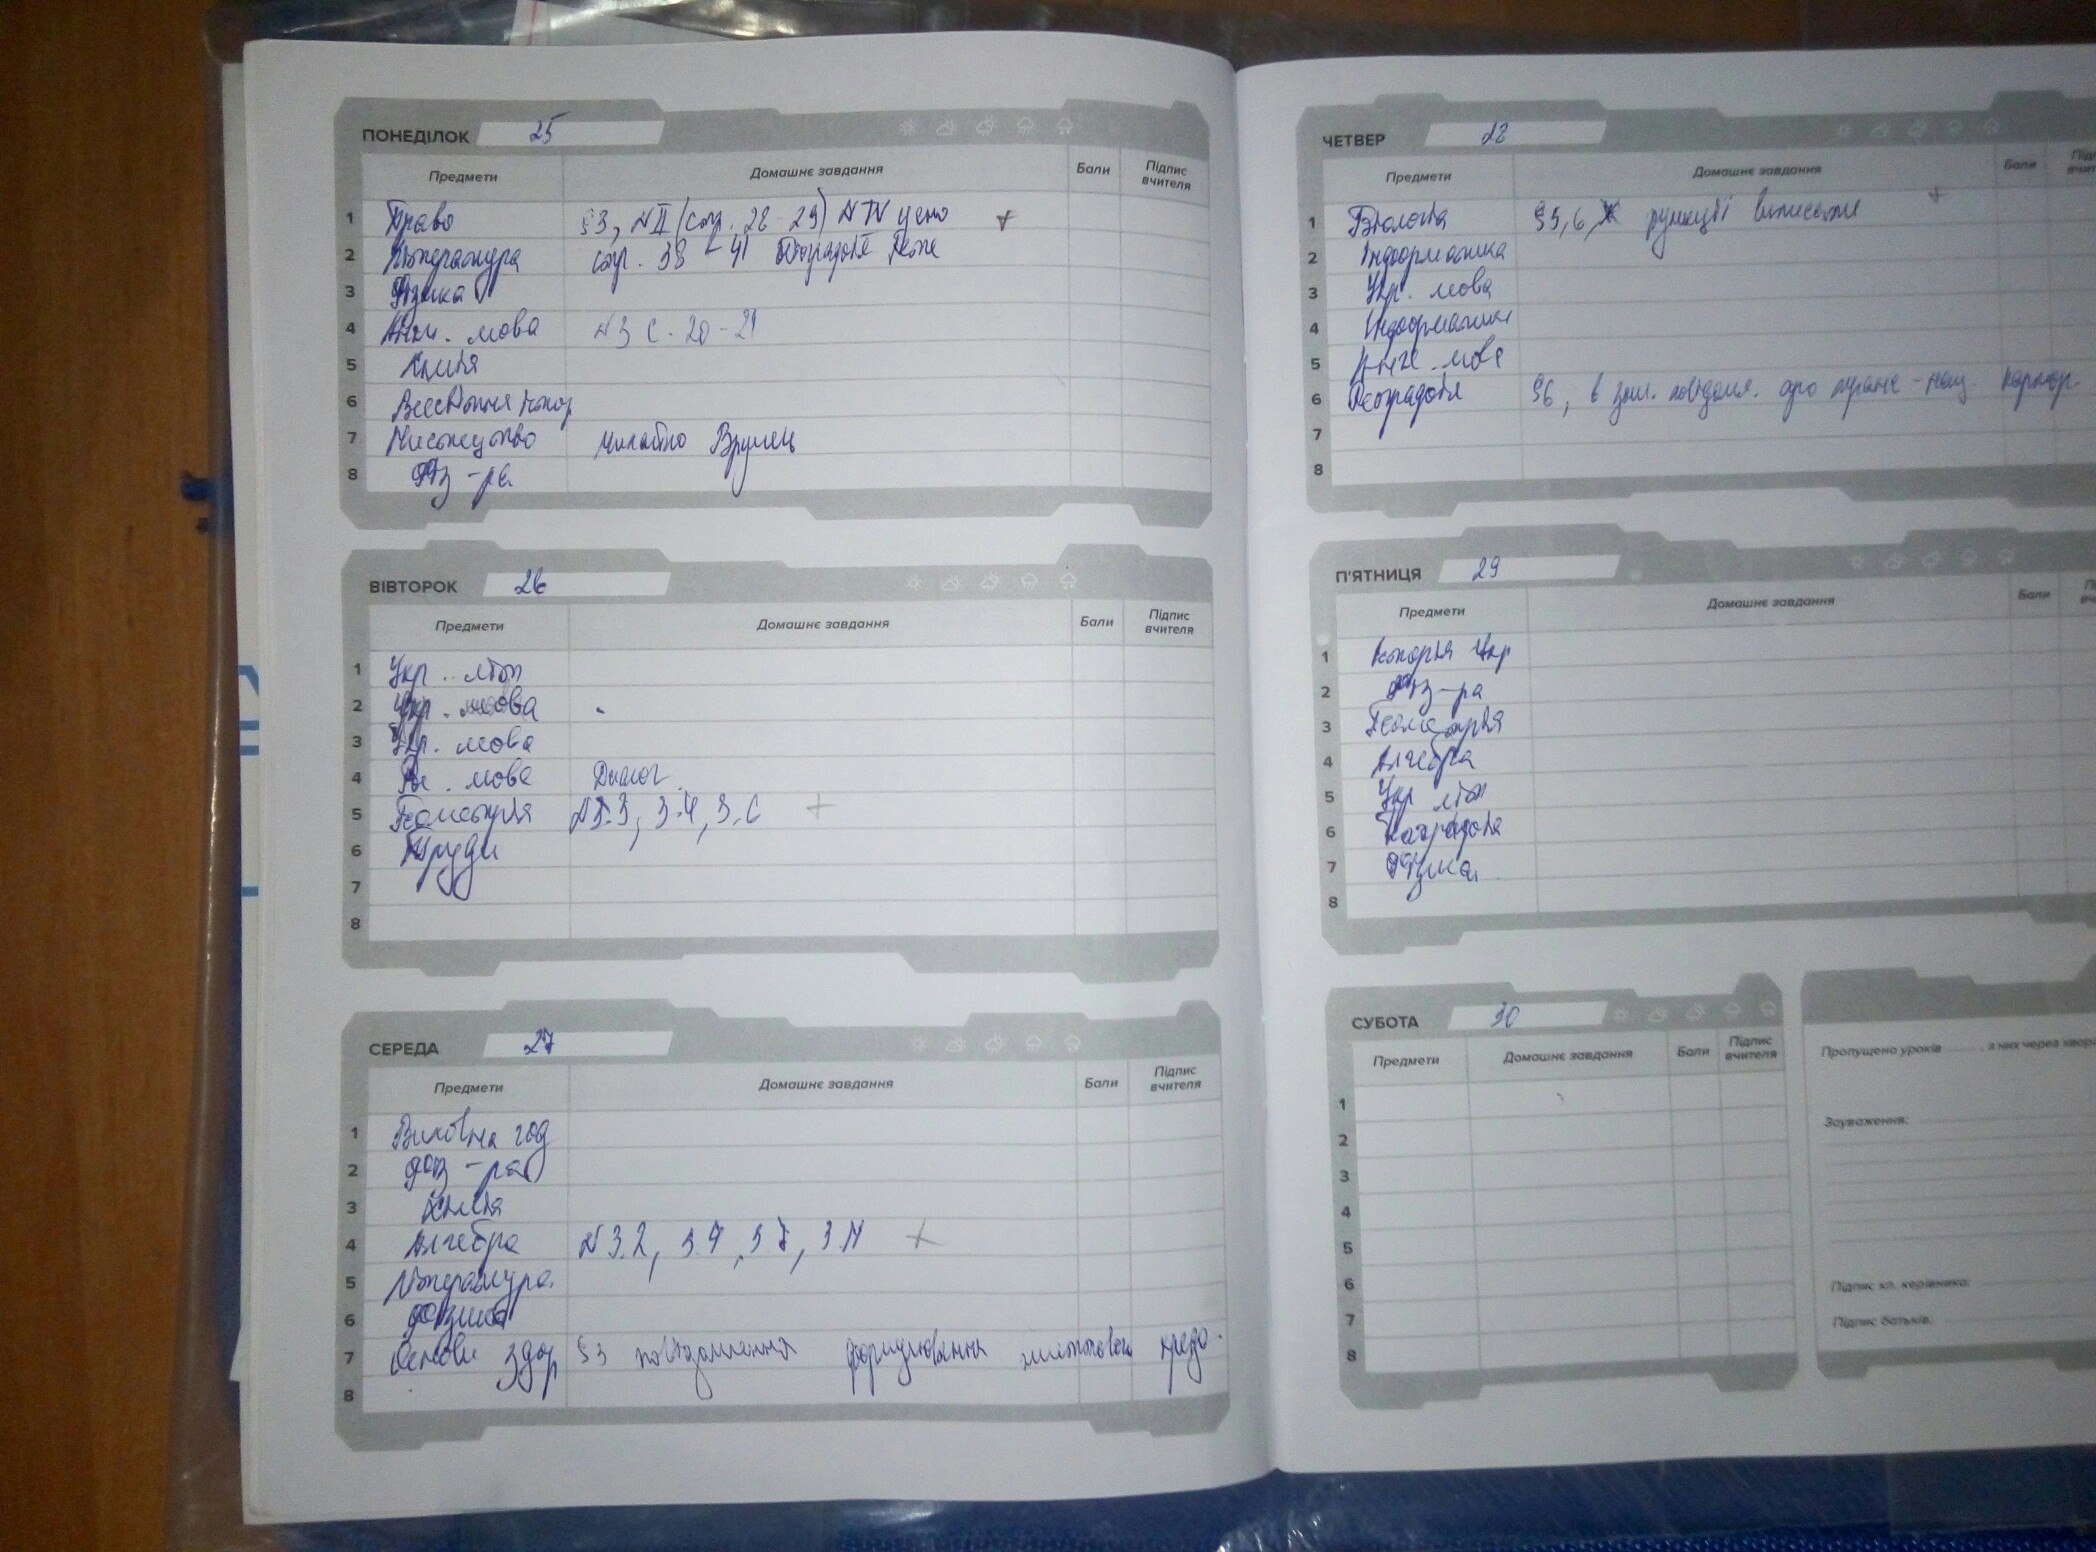 ПОНЕДІЛОК 25
Предмети Домашнє завдання Бали Підпис вчителя
1 Право §3, №II (стр. 28-29) №IV усно +
2 Література стр. 38-41 біографія
3 Фізика
4 Англ. мова №3 с. 20-21
5 Хімія
6 Всесвітня істор
7 Мистецтво Михайло
8 Фіз-ра
ВІВТОРОК 26
Предмети Домашнє завдання Бали Підпис вчителя
1 Укр. літ
2 Укр. мова
3 Укр. мова
4 мова Диалог
5 Геометрія 3.4, +
6 Труди
7
8
СЕРЕДА 27
Предмети Домашнє завдання Бали Підпис вчителя
1 Виховна год
2 Фіз-ра
3 Хімія
4 Алгебра №3.2, +
5 Література
6 Фізика
7 Основи здор §3 повідомлення формулювання життєвого кредо.
8
ЧЕТВЕР 28
Предмети Домашнє завдання Бали
1 Біологія §5, 6, функції виписати +
2 Інформатика
3 Укр. мова
4 Інформатика
5 мова
6 Географія §6, в про
7
8
П'ЯТНИЦЯ 29
Предмети Домашнє завдання Бали
1 Історія Укр
2 Фіз-ра
3 Геометрія
4 Алгебра
5 Укр літ
6 Географія
7 Фізика
8
СУБОТА 30
Предмети Домашнє завдання Бали Підпис вчителя
1
2
3
4
5
6
7
8
Пропущено уроків з них через хвор
Зауваження:
Підпис кл. керівника:
Підпис батьків: